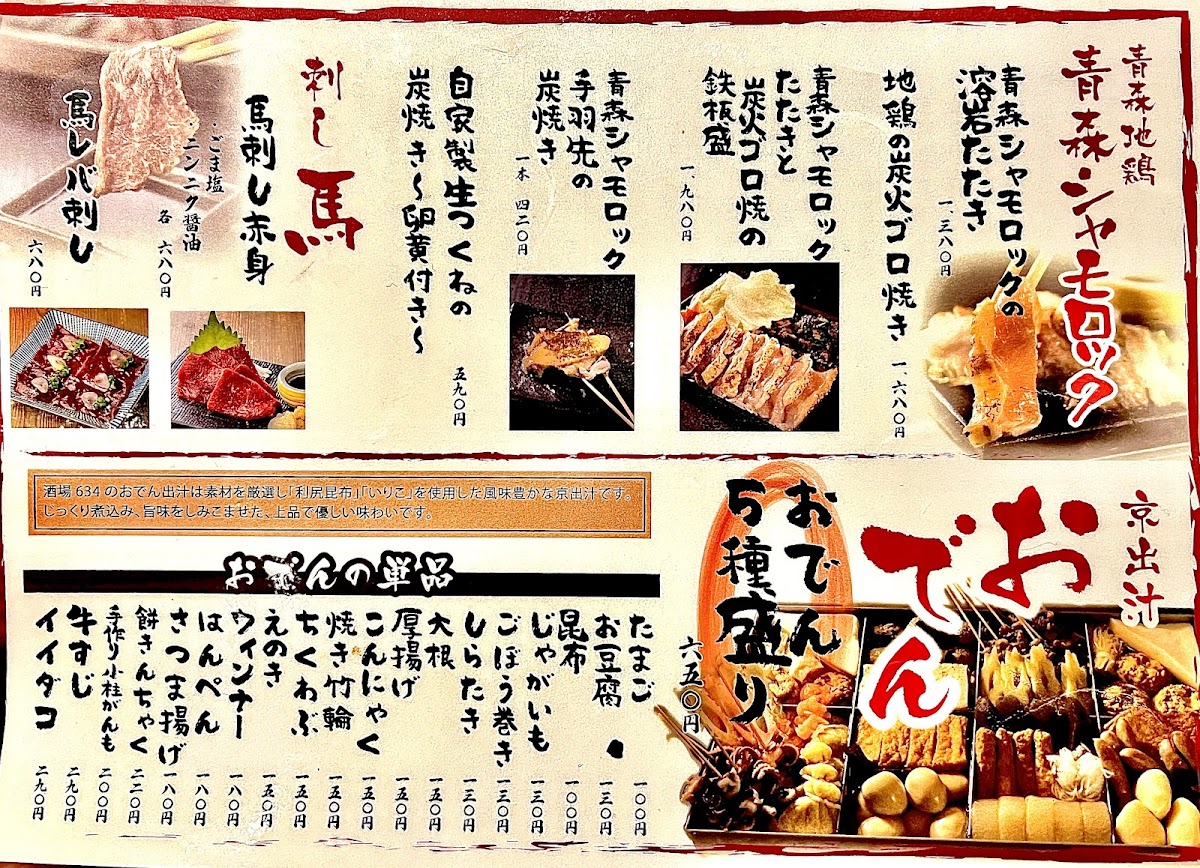 青森地鶏
青森シャモロック
青森シャモロックの
溶岩たたき
一、三八〇円
地鶏の炭火ゴロ焼き
一、六八〇円
青森シャモロック
たたきと
炭火ゴロ焼の
鉄板盛
一、九八〇円
青森シャモロック
手羽先の
炭焼き
一本 四二〇円
自家製生つくねの
炭焼き〜卵黄付き〜
五九〇円
刺し馬
馬刺し赤身
・ごま塩
・ニンニク醤油
各 六八〇円
馬レバ刺し
六八〇円
京出汁
おでん
おでん
5種盛り
六五〇円
酒場634のおでん出汁は素材を厳選し「利尻昆布」「いりこ」を使用した風味豊かな京出汁です。
じっくり煮込み、旨味をしみこませた、上品で優しい味わいです。
おでんの単品
たまご 一〇〇円
お豆腐 一三〇円
昆布 一〇〇円
じゃがいも 一三〇円
ごぼう巻き 一三〇円
しらたき 一三〇円
大根 一五〇円
厚揚げ 一五〇円
こんにゃく 一五〇円
焼き竹輪 一五〇円
ちくわぶ 一五〇円
えのき 一五〇円
ウィンナー 一八〇円
はんぺん 一八〇円
さつま揚げ 一八〇円
餅きんちゃく 二二〇円
手作り小柱がんも 二〇〇円
牛すじ 二九〇円
イイダコ 二九〇円